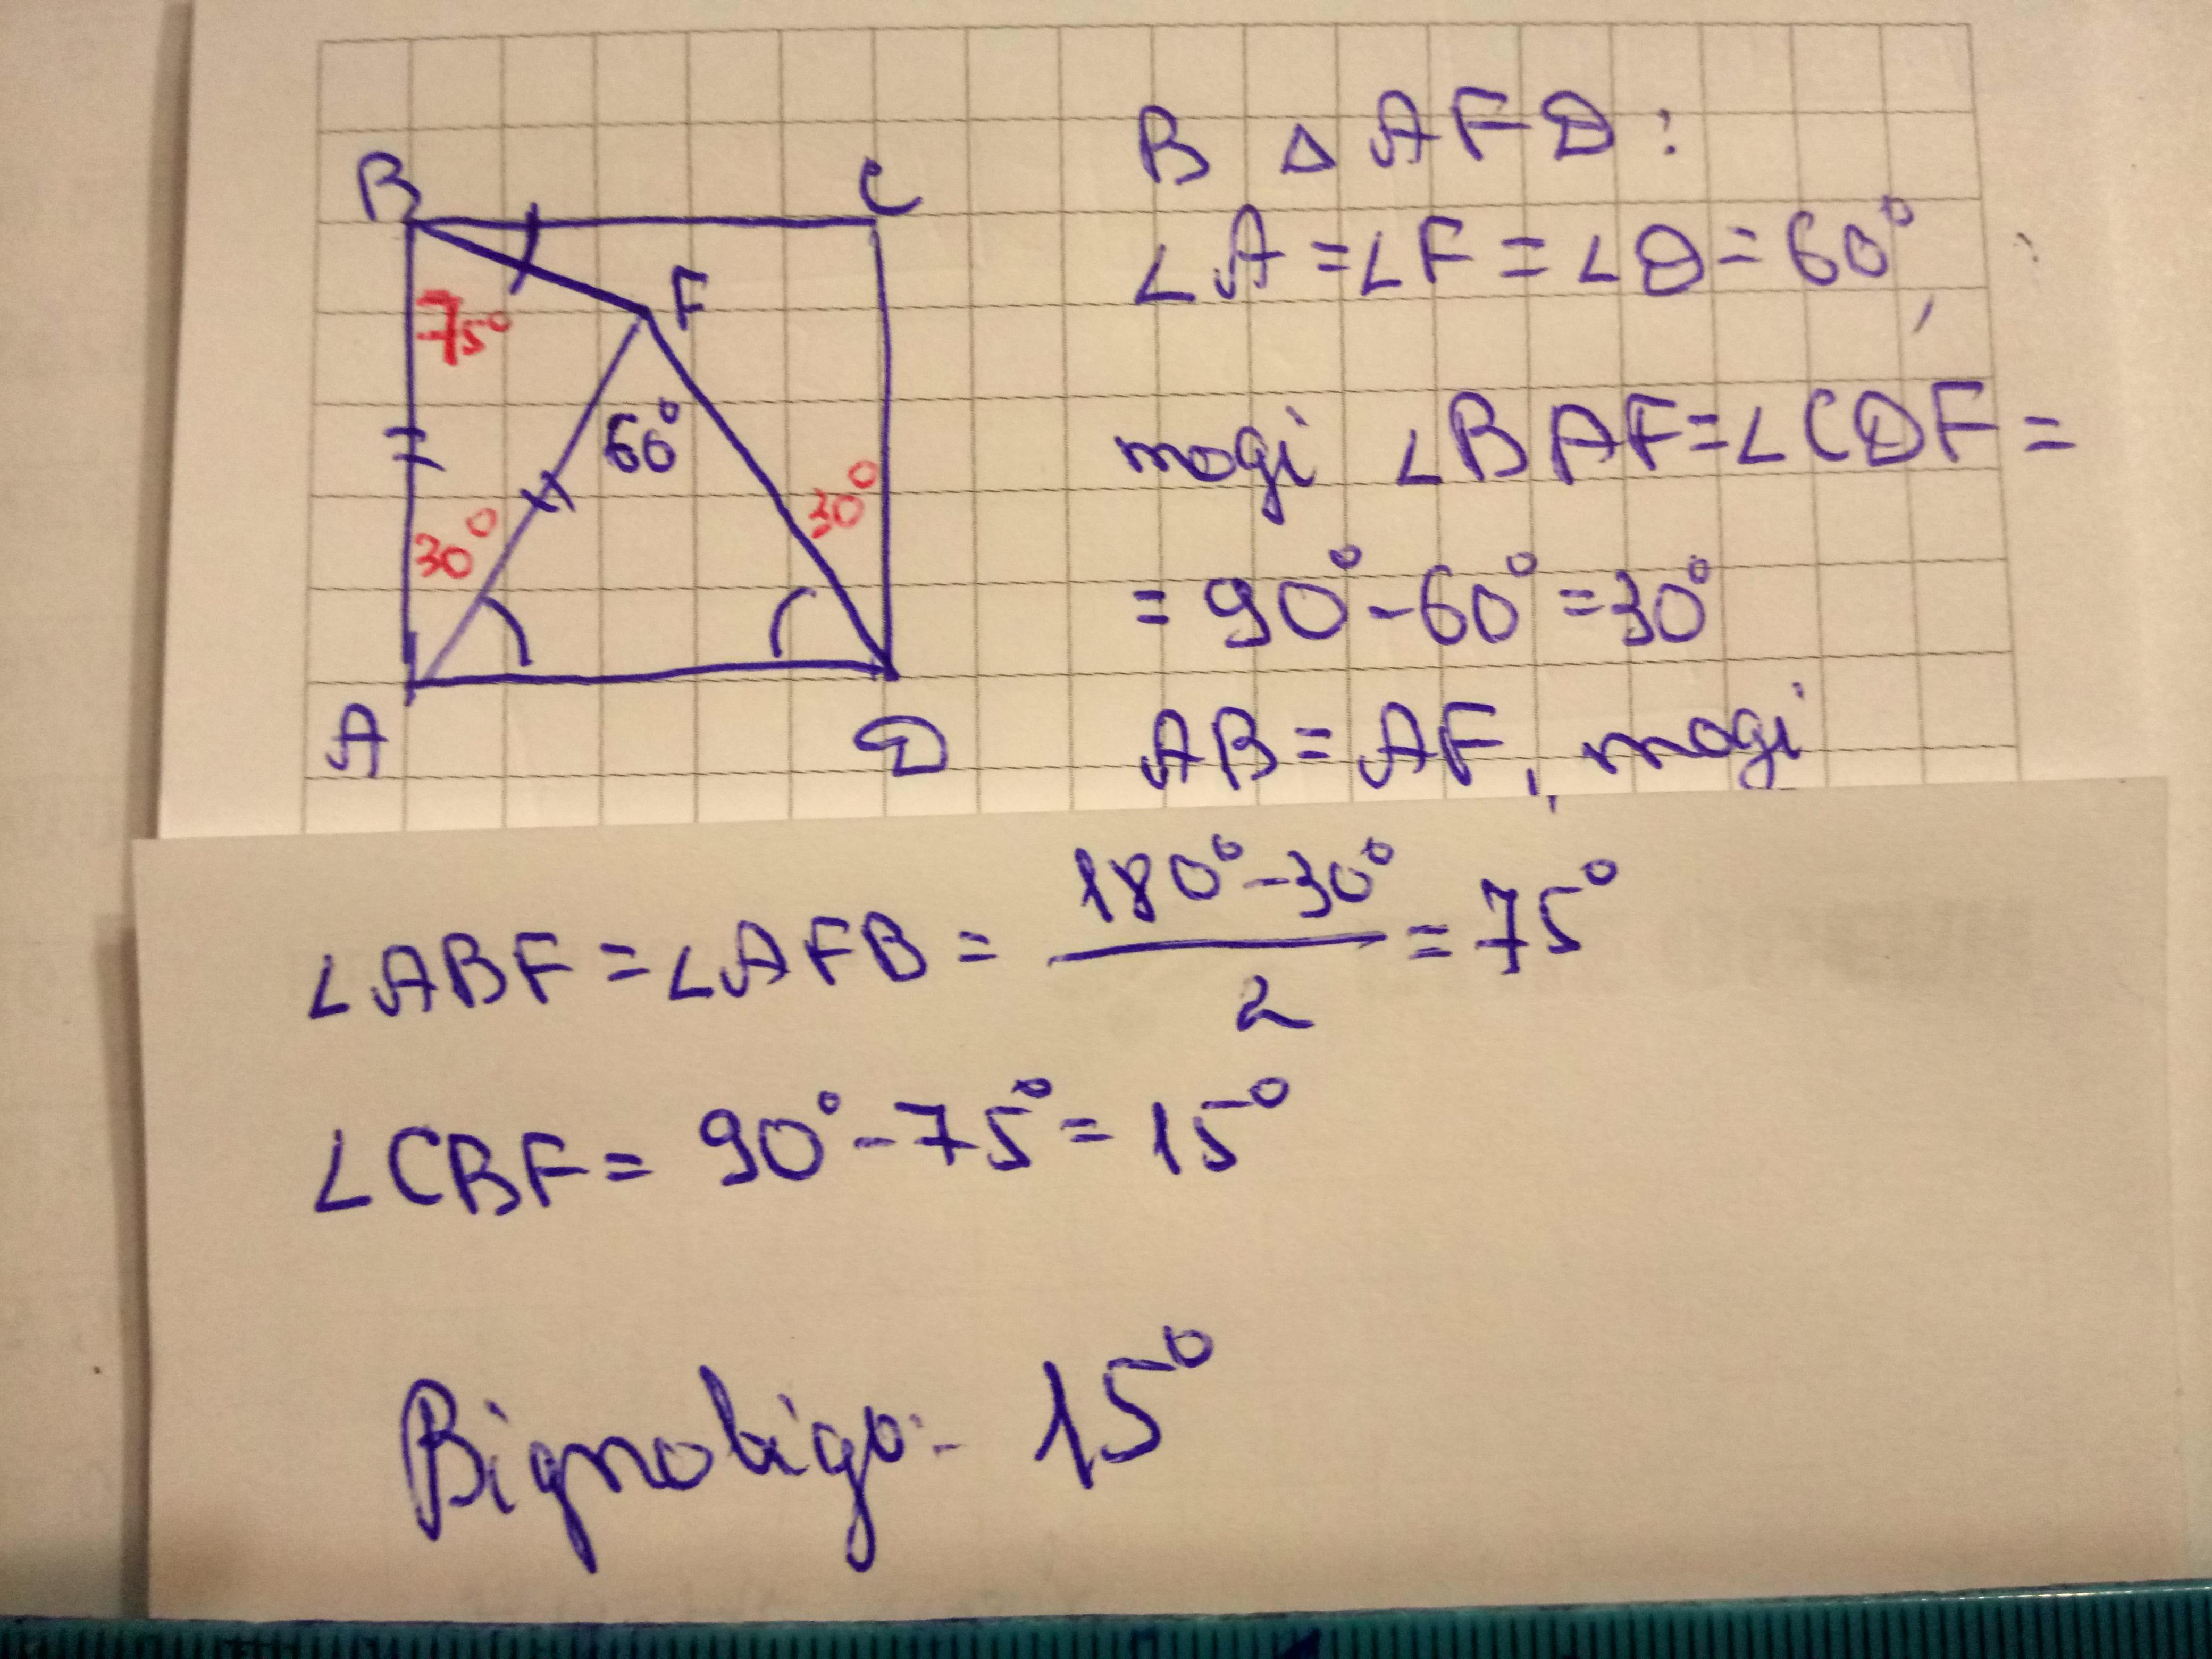 B C
F
75°
60°
30° 30°
A D
В △ AFD:
∠A = ∠F = ∠D = 60°,
тоді ∠BAF = ∠CDF =
= 90° - 60° = 30°
AB = AF, тоді
∠ABF = ∠AFB = (180° - 30°)/2 = 75°
∠CBF = 90° - 75° = 15°
Відповідь: 15°